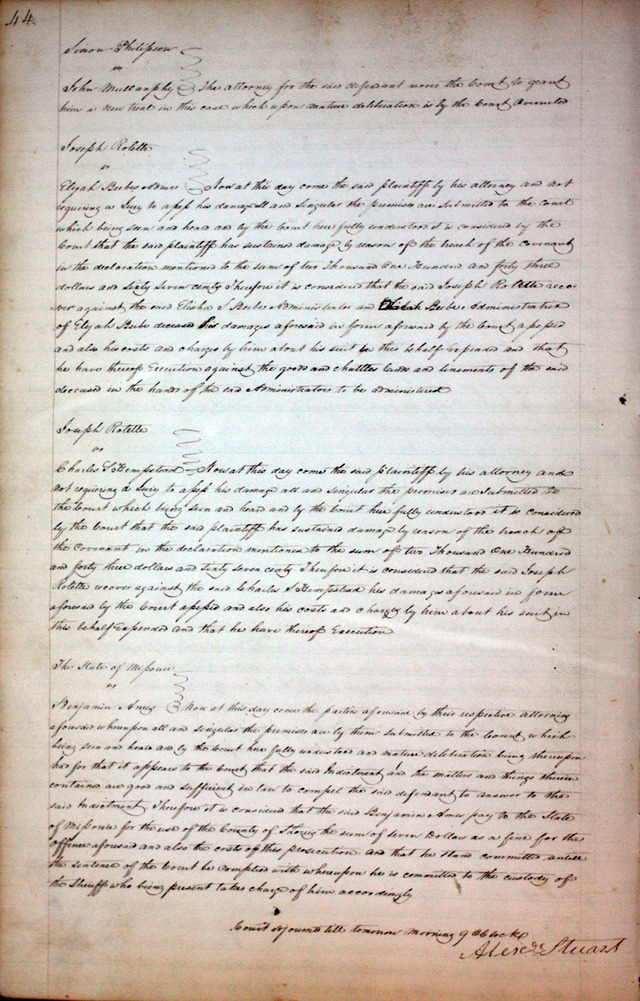 44
Simon Philipson
vs
John Mullanphy The attorney for the said defendant moves the Court to grant
him a new trial in this case which upon mature deliberation is by the Court
Joseph Rolette
vs
Elijah Beebes Admrs Now at this day come the said plaintiff by his attorney and not
requiring a Jury to assess his damage all and singular the premises are submitted to the Court
which being seen and heard and by the Court here fully understood it is considered by the
Court that the said plaintiff has sustained damage by reason of the breach of the Covenant
in the declaration mentioned to the sum of two Thousand One Hundred and forty three
dollars and sixty seven cents Therefore it is considered that the said Joseph Rolette reco-
ver against the said Elisha S Beebe Administrator and Beebe Administratrix
of Elijah Beebe deceased his damages aforesaid in form aforesaid by the Court assessed
and also his costs and charges by him about his suit in this behalf Expended and that
he have thereof Execution against the goods and chattles lands and tenements of the said
deceased in the hands of the said Administrators to be administered
Joseph Rolette
vs
Charles S Hempstead Now at this day come the said plaintiff by his attorney and
not requiring a Jury to assess his damage all and singular the premises are Submitted to
the Court which being seen and heard and by the Court here fully understood it is considered
by the Court that the said plaintiff has sustained damage by reason of the breach of
the Covenant in the declaration mentioned to the sum of two Thousand One Hundred
and forty three dollars and sixty seven cents Therefore it is considered that the said Joseph
Rolette recover against the said Charles S Hempstead his damages aforesaid in form
aforesaid by the Court assessed and also his costs and charges by him about his suit in
this behalf Expended and that he have thereof Execution
The State of Missouri
vs
Benjamin Amey Now at this day come the parties aforesaid by their respective attorney
aforesaid whereupon all and singular the premises are by them submitted to the Court which
being seen and heard and by the Court here fully understood and mature deliberation being thereupon
had for that it appears to the Court that the said Indictment and the matters and things therein
contained are good and sufficient in law to compel the said defendant to answer to the
said Indictment. Therefore it is considered that the said Benjamin Amey pay to the State
of Missouri for the use of the County of St Louis the sum of Seven Dollars as a fine for the
offence aforesaid and also the costs of this prosecution and that he stand committed untill
the sentence of the Court be complied with whereupon he is committed to the custody of
the Sheriff who being present takes charge of him accordingly
Court adjourned till tomorrow Morning 9 OClock
Alexdr Stuart